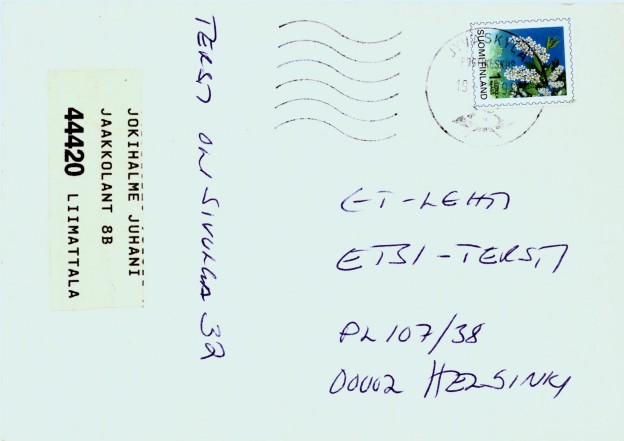 TERSTI ON SIVULLA 32
JOKIHALME JUHANI
JAAKKOLANT 8B
44420 LIIMATTALA
JYVÄSKYLÄ
SUOMI FINLAND
1
ET-LEHTI
ETSI-TERSTI
PL 107/38
00002 HELSINKI